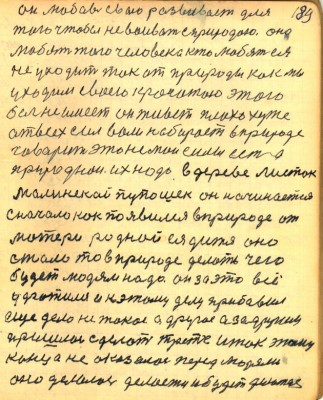 он любовь свою развивает для 189
того чтобы не воевать с природою. она
любят того человека кто любят ся
не уходит так от природы как мы
уходим своею красотою этого
бог не имеет он живет плохо хуже
от всех сил вам набирает в природе
говорит это не мои силы есть а
природной. их надо. в дереве листок
маленькой путошек он начинается
сначало как появился в природе от
матери родной ся дитя оно
стало то в природе делать чего
будет людям надо. он за это всё
ухватился и к этому делу прибавил
еще дело не такое а другое а за другим
пришлось сделать третье и так этому
конца не оказалось перед людями
оно делалось делается и будет